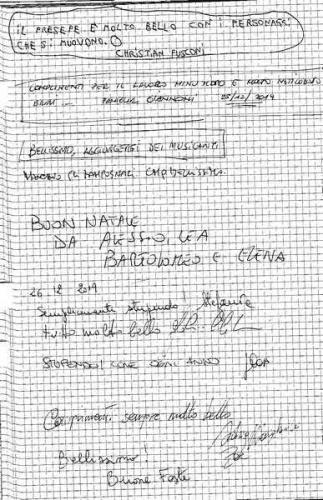 IL PRESEPE È MOLTO BELLO CON I PERSONAGGI
CHE SI MUOVONO.
CHRISTIAN FUSCONI
COMPLIMENTI PER IL LAVORO MINUZIOSO E MOLTO
BRAVI ... FAMIGLIA GIANNONI 25/12/2019
BELLISSIMO, AGGIUNGETECI DEI MUSICANTI
BUON NATALE
DA ALESSIO, LEA
BARTOLOMEO E ELENA
26 12 2019
Semplicemente stupendo! Stefania
tutto molto bello
STUPENDO! COME OGNI ANNO
Complimenti sempre molto bello
Bellissimo!
Buone Feste